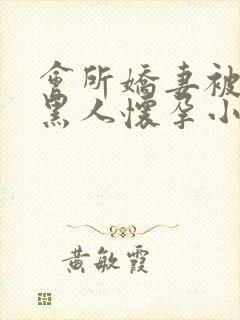 會所嬌妻被
黑人懷孕小
黃敏霞